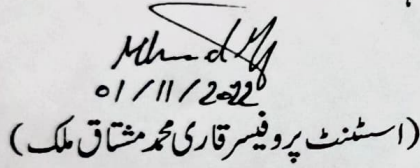 01/11/2022
(اسسٹنٹ پروفیسر قاری محمد مشتاق ملک)